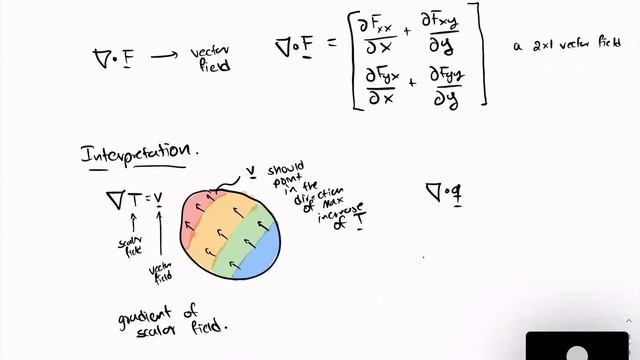 ∇∘F → vector field
∇∘F = [∂Fxx/∂x + ∂Fxy/∂y
∂Fyx/∂x + ∂Fyy/∂y]
a 2x1 vector field
Interpretation.
∇T = v
scalar field
vector field
v should
point
in the
direction
of max
increase
of T
∇∘q
gradient of
scalar field.